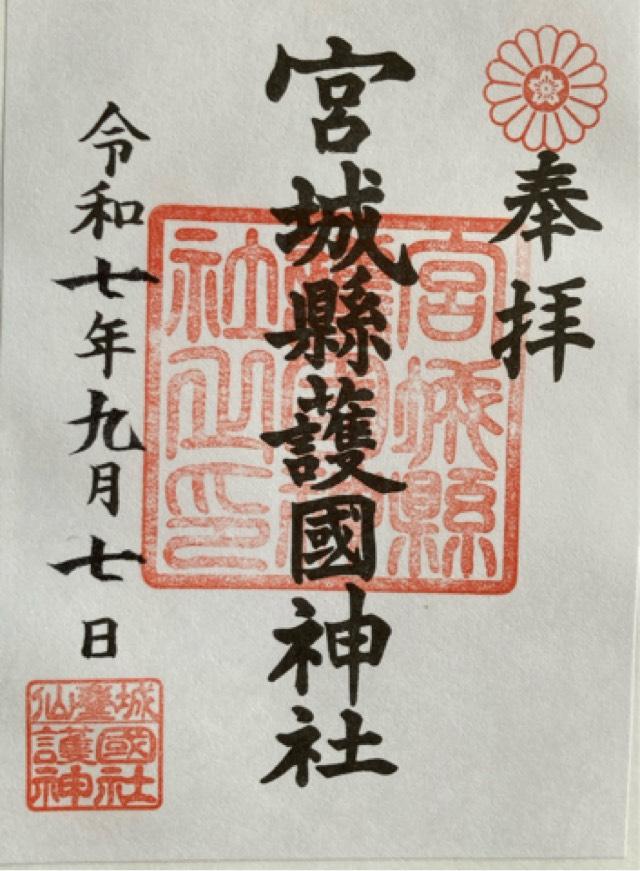 奉拝
宮城縣護國神社
宮城縣
護國神
社之印
令和七年九月七日
仙臺城
護國
神社